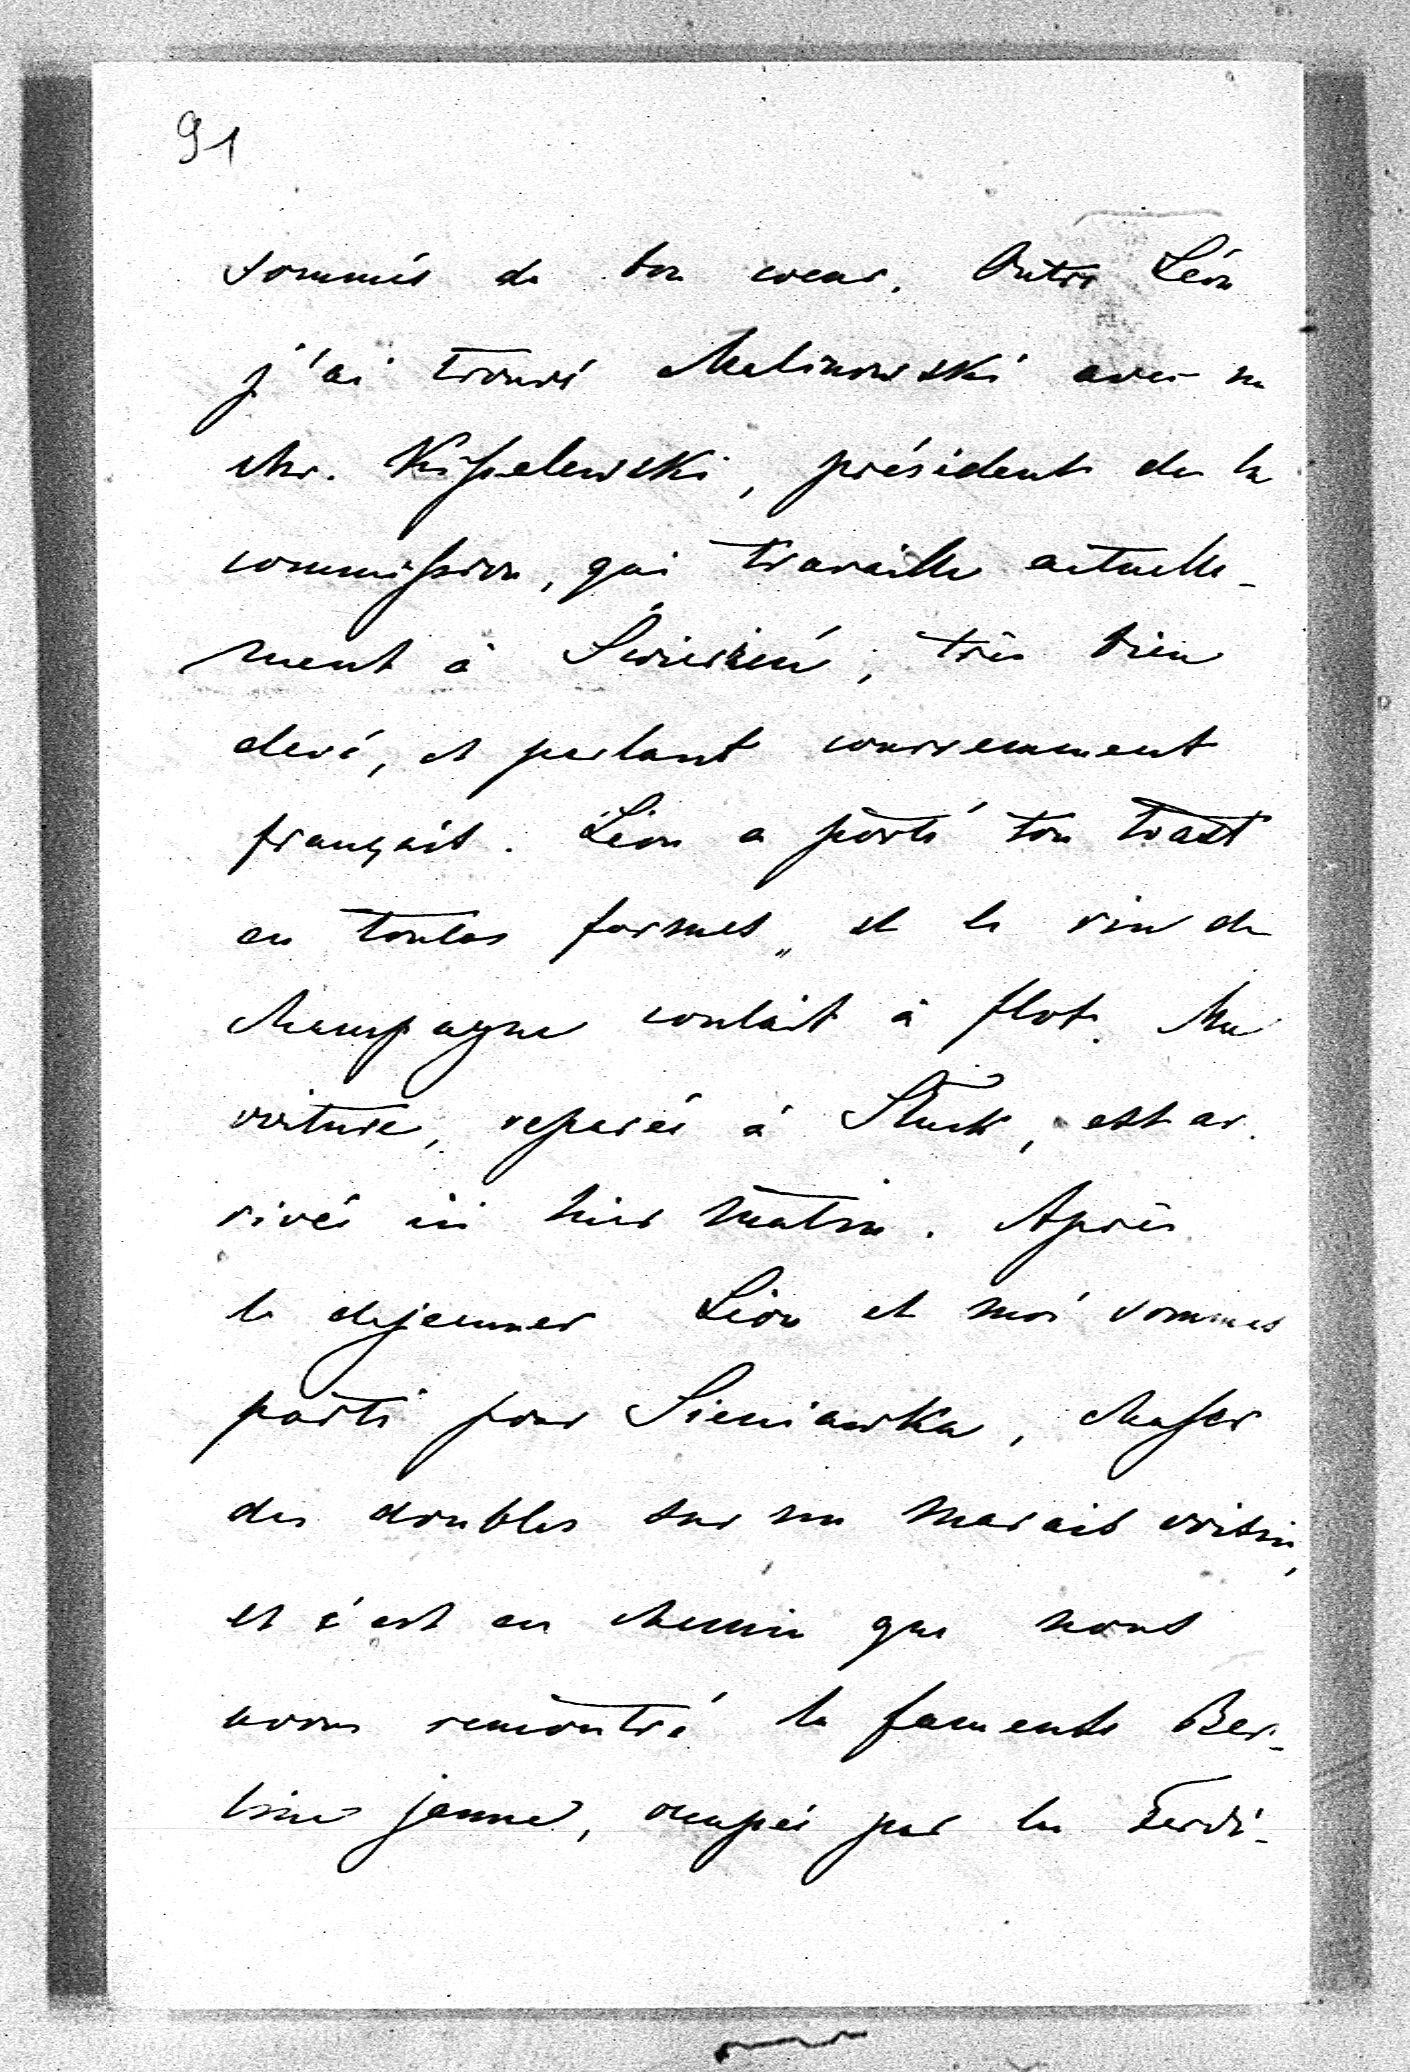 91
sommés de bon coeur. Outre Léon
j'ai trouvé Malinowski avec un
Mr. Kisselewski, président de la
commission, qui travaille actuelle-
ment à Swierzeń, très bien
elevé, et parlant couremment
français. Léon a porté ton toast
en toutes formes, et le vin de
Champagne coulait à flot. Ma
voiture, reparée à Stuck, est ar-
rivée ici hier matin. Après
le dejeuner Léon et moi sommes
parti pour Sieniawka, chasser
des doubles sur un marais voisin,
et c'est en chemin que nous
avons rencontré la fameuse Ber-
line jaune, occupée par les Ferdi-